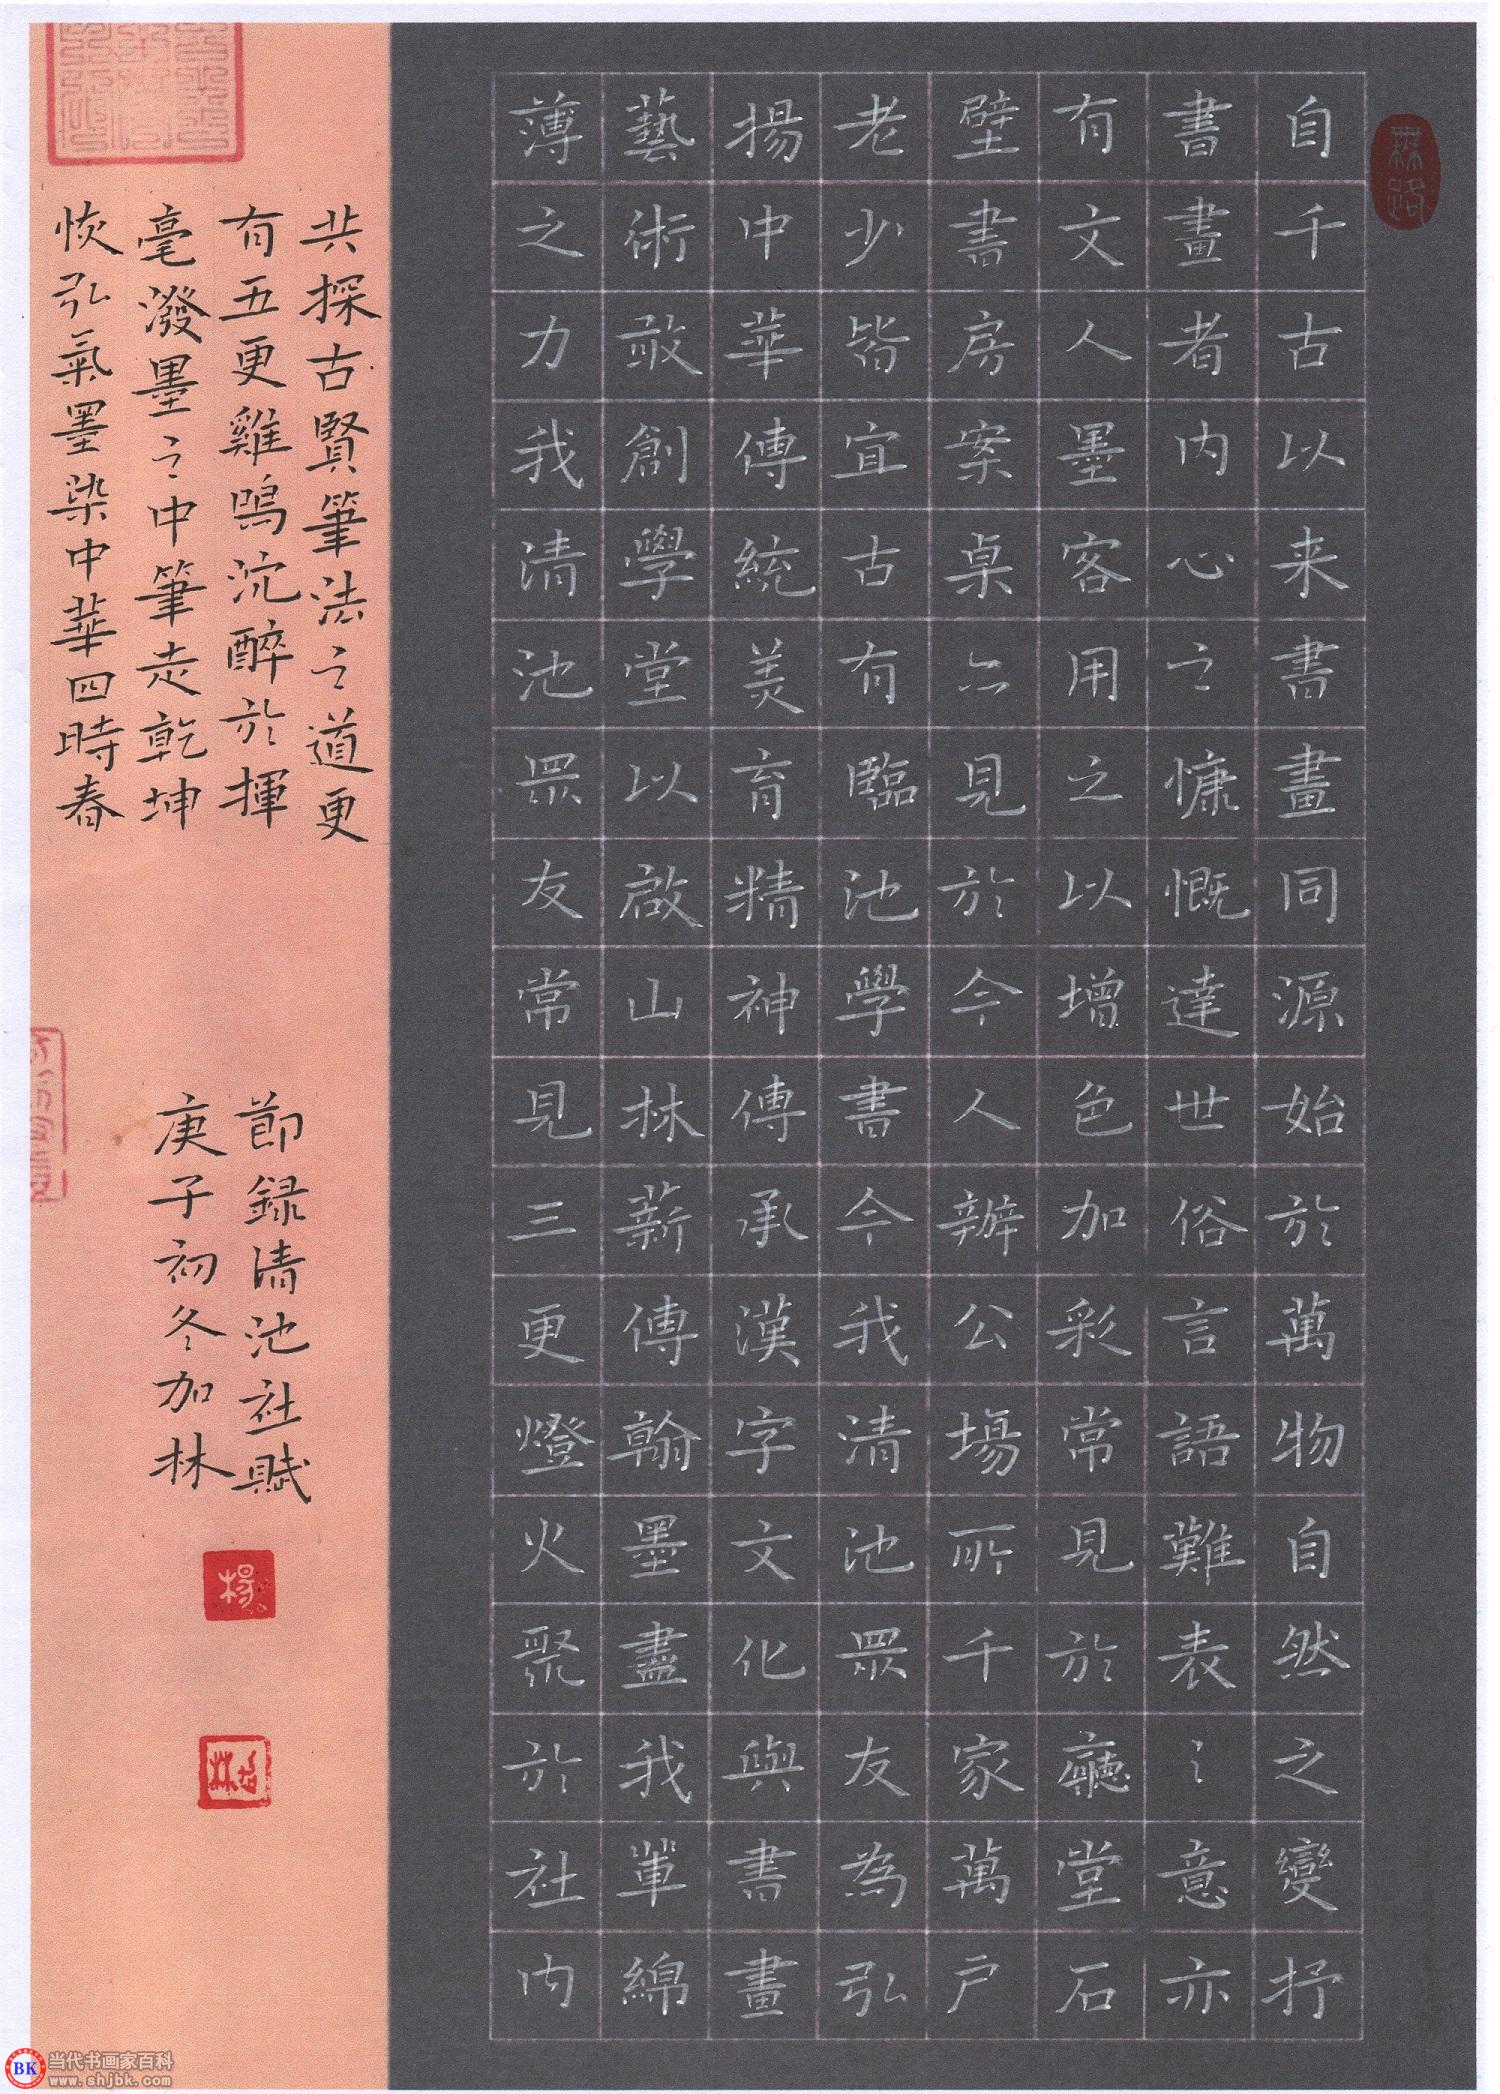 自千古以来書畫同源始於萬物自然之變抒
書畫者内心之慷慨達世俗言語難表之意亦
有文人墨客用之以增色加彩常見於廳堂石
壁書房案桌亦見於今人辦公場所千家萬户
老少皆宜古有臨池學書今我清池眾友為弘
揚中華傳統美育精神傳承漢字文化與書畫
藝術敢創學堂以啟山林薪傳翰墨盡我單綿
薄之力我清池眾友常見三更燈火聚於社内
共探古賢筆法之道更
有五更雞鳴沉醉於揮
毫潑墨之中筆走乾坤
恢弘氣墨染中華四時春
節録清池社賦
庚子初冬加林
楊
加林
BK
当代书画家百科
www.shjbk.com